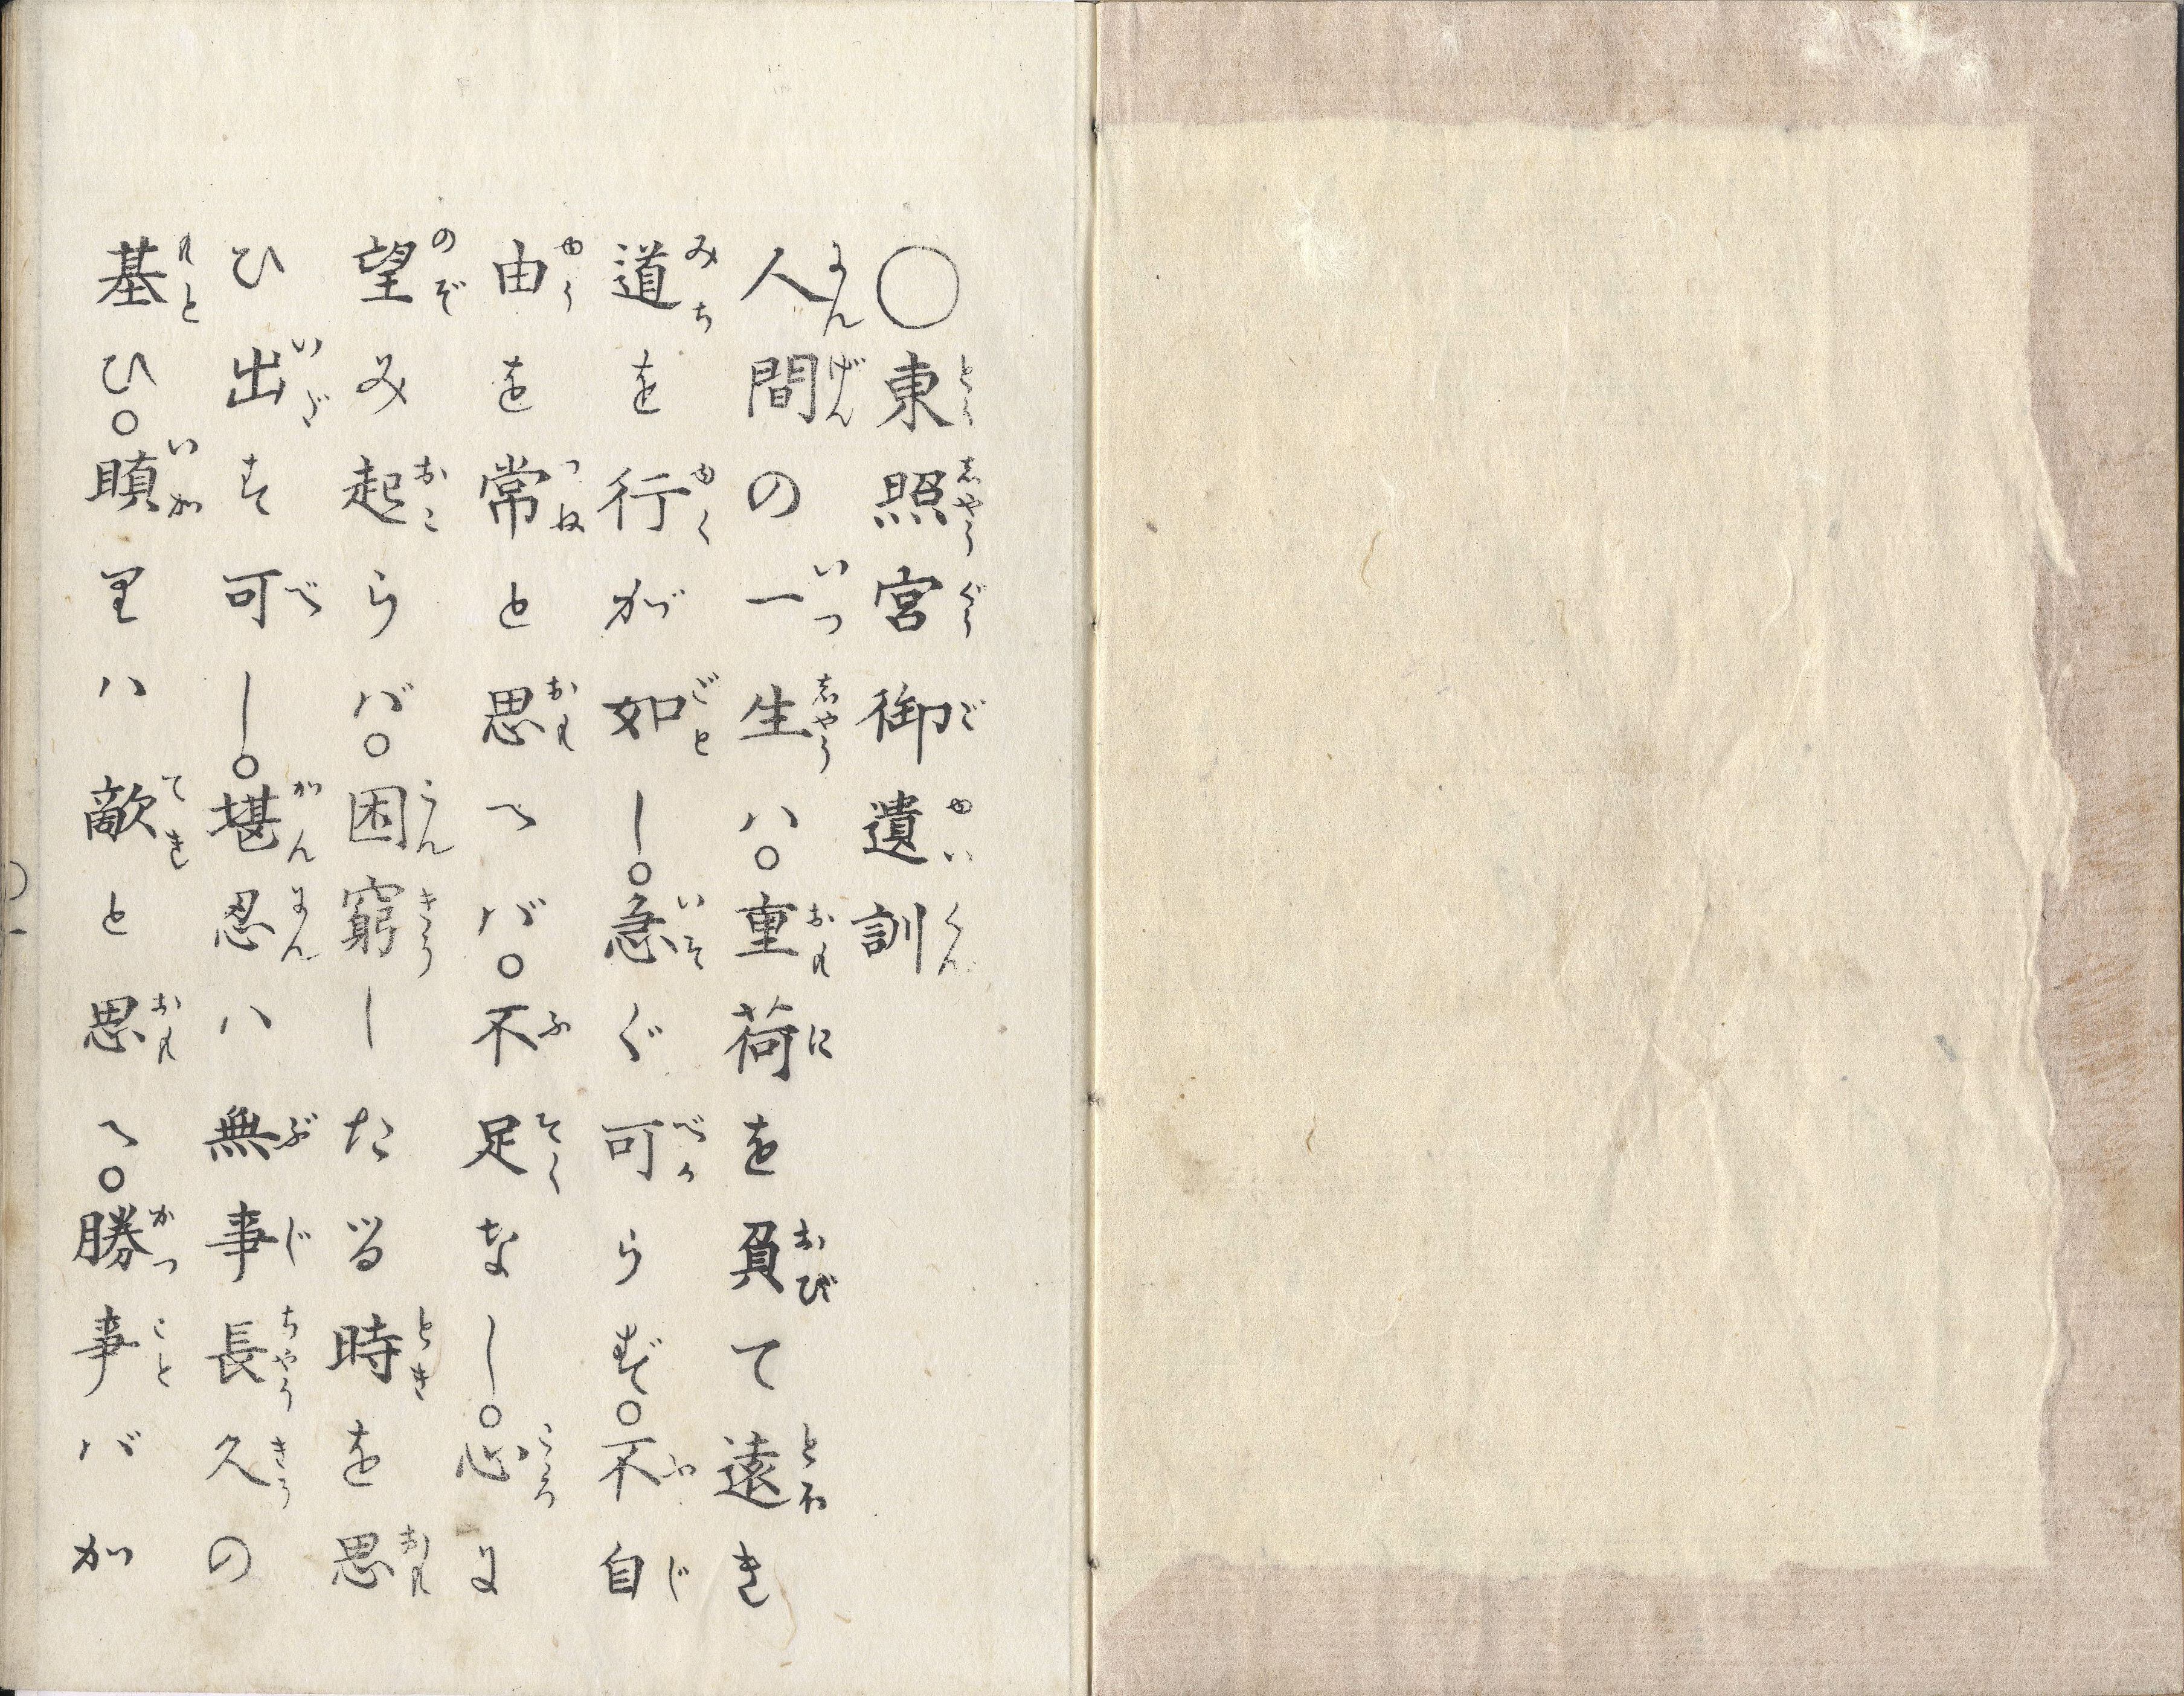 〇東照宮御遺訓
人間の一生ハ。重荷を負て遠き
道を行が如し。急ぐ可らず。不自
由を常と思へバ。不足なし。心に
望み起らバ。困窮したる時を思
ひ出す可し。堪忍ハ無事長久の
基ひ。瞋りハ敵と思へ。勝事バか